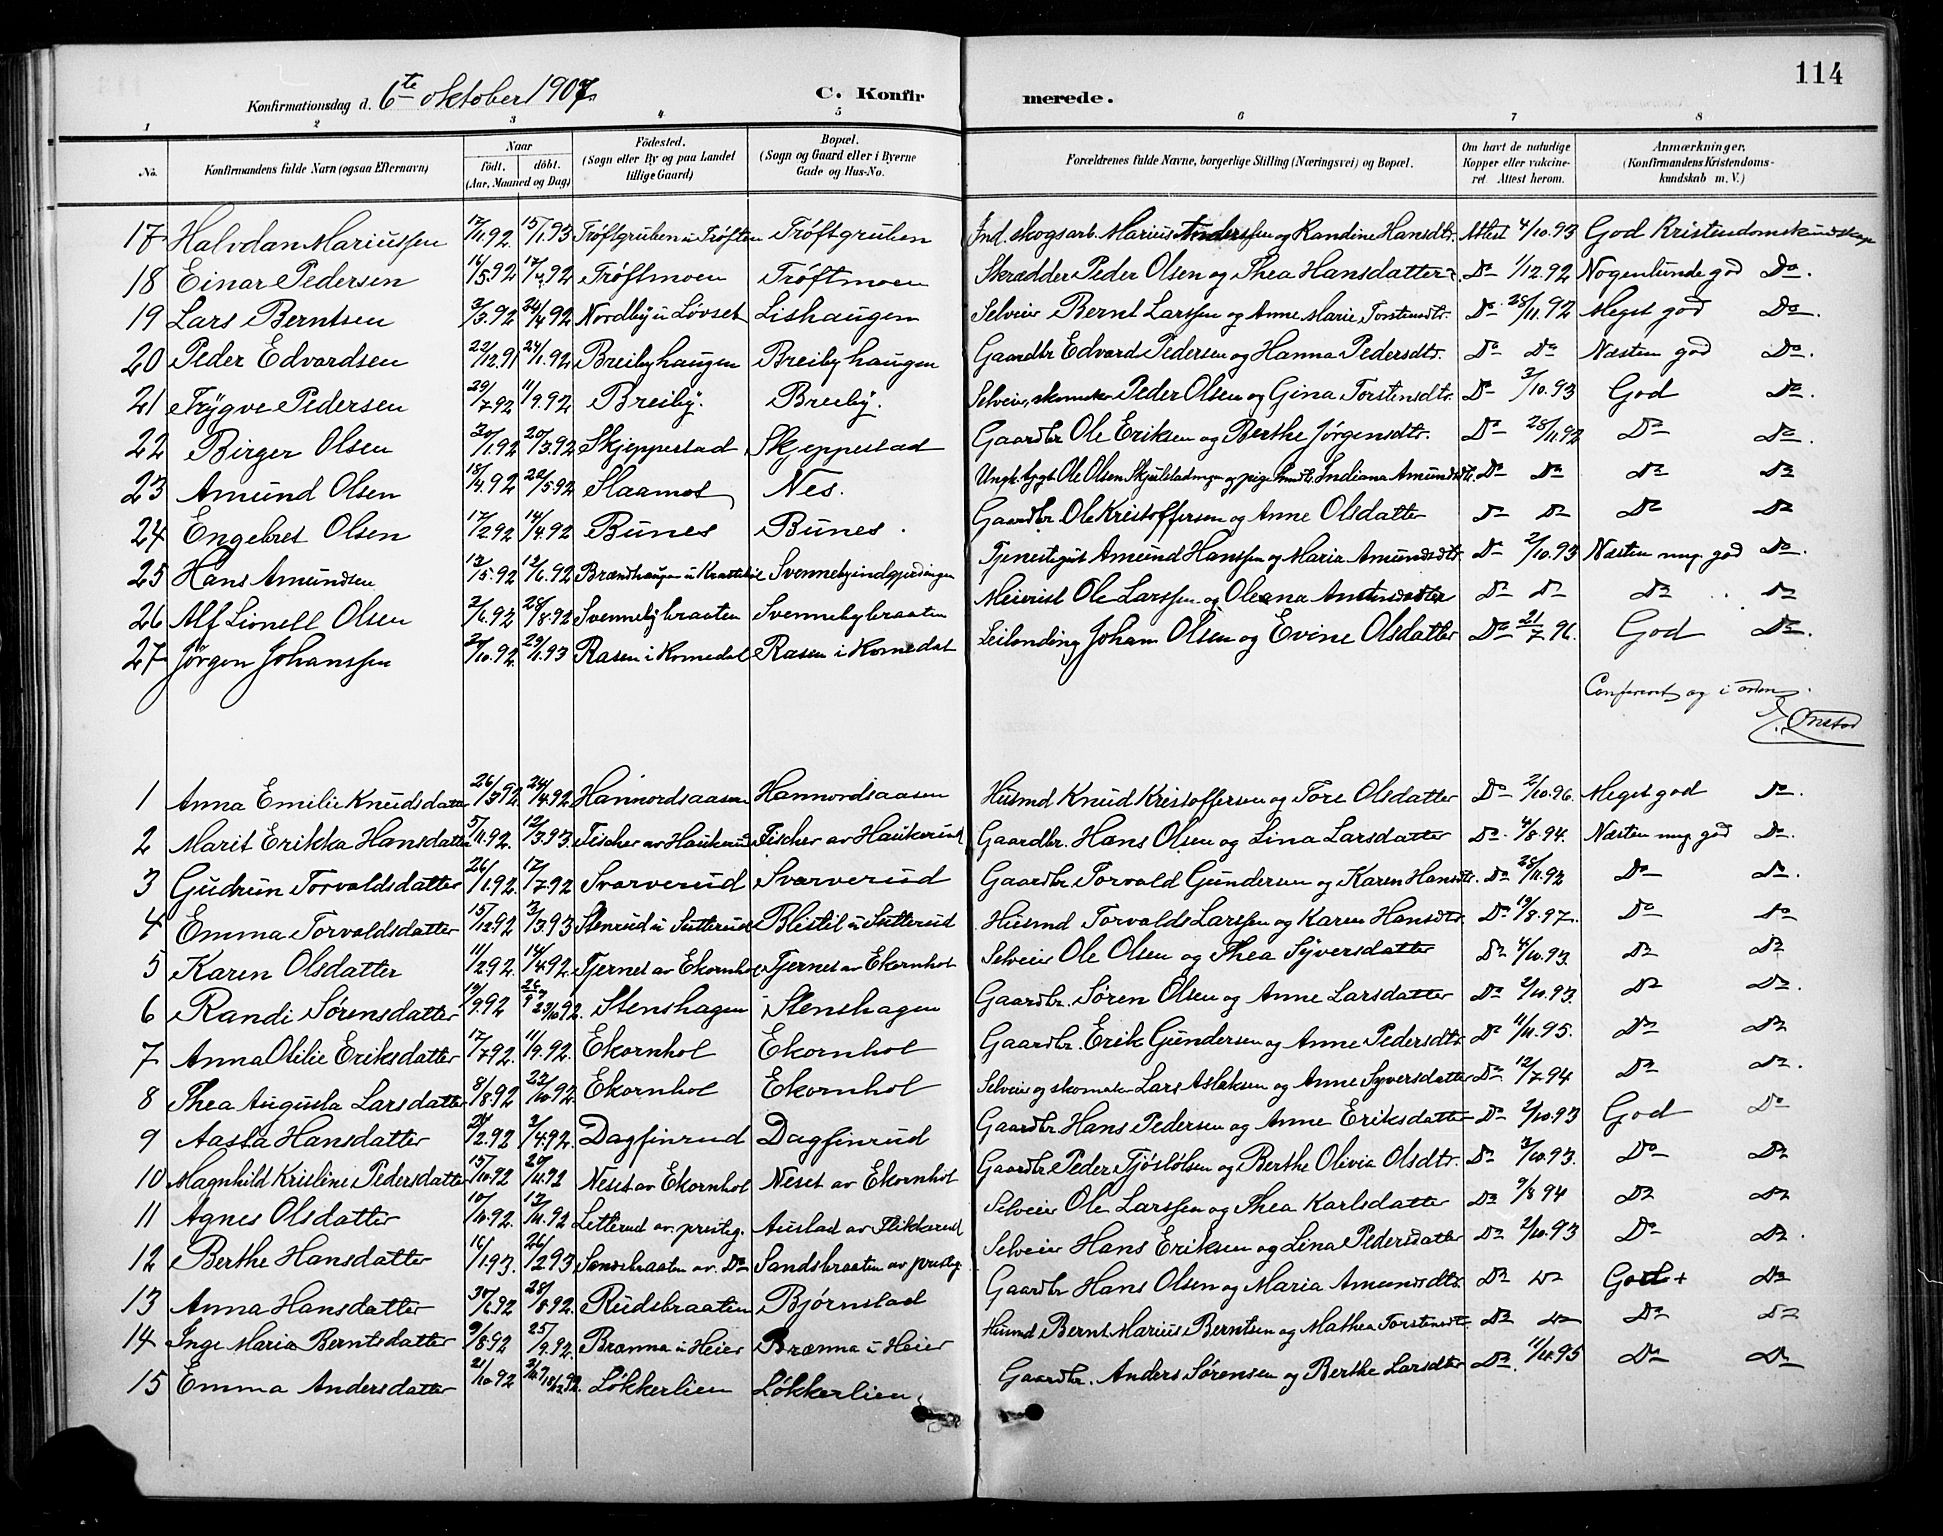 114
Konfirmationsdag d. 6te oktober 1907. C. Konfirmerede.
1 2 3 4 5 6 7 8
No. Konfirmandens fulde Navn (ogsaa Efternavn) Naar födt. döbt. (Aar, Maaned og Dag) Födested. (Sogn eller By og paa Landet tillige Gaard) Bopæl. (Sogn og Gaard eller i Byerne Gade og Hus-No. Forældrenes fulde Navne, borgerlige Stilling (Næringsvei) og Bopæl. Om havt de naturlige Kopper eller vaccineret Attest herom. Anmærkninger. (Konfirmandens Kristendomskundskab m. V.)
17 Halvdan Mariussen 17/11.92. 15/1.93 Tröftgruben u Tröften Tröftgruben Ind. skogsarb. Marius Anderssen og Randine Hansdtr. Attest 4/10.93 God Kristendomskundskap
18 Einar Pedersen 16/5.92 17/4.92 Tröftmoen Tröftmoen Skrædder Peder Olsen og Thea Hansdatter Do 1/12.92 Nogenlunde god Do.
19 Lars Berntsen 3/3.92 24/4.92 Nordby u Lövset Lishaugen Selveier Bernt Larssen og Anne Marie Torstensdtr. Do 28/11.92 Meget god Do.
20 Peder Edvardsen 22/12.91 24/1.92 Breibyhaugen Breibyhaugen Gaardbr Edvard Pedersen og Hanna Pedersdtr. Do Do Næsten god Do.
21 Trygve Pedersen 29/7.92 11/9.92 Breiby. Breiby. Selveier, skomaker Peder Olsen og Gina Torstensdtr. Do 3/10.93 God Do.
22 Birger Olsen 30/1.92 20/3.92 Skjeppestad Skjeppestad Gaardbr Ole Eriksen og Berthe Jörgensdtr. Do 28/11.92 Do Do.
23 Amund Olsen 18/4.92 22/5.92 Slaamot Nes. Ole Olsen og pige Indiana Amundsdtr. Do Do Do Do
24 Engebret Olsen 17/2.92 14/4.92 Bunes Bunes. Gaardbr. Ole Kristoffersen og Anne Olsdatter Do Do Do Do
25 Hans Amundsen 12/5.92 12/6.92 Brændhaugen u Svennebyindgjerdingen Tjenestegut Amund Hanssen og Maria Amundsdtr. Do 2/10.93 Næsten mug. god Do.
26 Alf Lionell Olsen 2/6.92 28/8.92 Svennebybraaten Svennebybraaten Meierist Ole Larssen og Oleana Do Do Do Do
27 Jörgen Johanssen 20/10.92 29/1.93 Rasen i Romedal Rasen i Romedal Leilending Johan Olsen og Evine Olsdatter Do 21/7 96. God Do.
Confereret og i orden.
1 Anna Emilie Knudsdatter 26/3.92 24/4.92 Hannordsaasen Hannordsaasen Husmd Knud Kristoffersen og Tore Olsdatter Do 2/10.96. Meget god Do.
2 Marit Erikka Hansdatter 5/11.92. 12/3.93. Fischer av Haukerud Fischer av Haukerud Gaardbr. Hans Olsen og Lina Larsdatter Do. 4/8.94. Næsten mug. god Do.
3 Gudrun Torvaldsdatter 26/1.92. 17/7.92 Svarverud Svarverud Gaardbr Torvald Gundersen og Karen Hansdtr. Do 28/11.92 Do Do.
4 Emma Torvaldsdatter 15/12.92 3/3.93 Stenrud u Sutterud Blistil u Sutterud Husmd Torvald Larssen og Karen Hansdtr. Do 19/8.97. Do Do
5 Karen Olsdatter 11/2.92. 14/4.92. Tjernet av Ekornhol Tjernet av Ekornhol Selveier Ole Olsen og Thea Syversdatter Do 4/10.93. Do Do
6 Randi Sörensdatter 19/9.92 23/10 92. Stenshagen Stenshagen Gaardbr. Sören Olsen og Anne Larsdatter Do 2/10.93. Do Do.
7 Anna Otilie Eriksdatter 17/7.92. 11/9.92. Ekornhol Ekornhol Gaardbr. Erik Gundersen og Anne Pedersdtr. Do 11/11.95. Do Do
8 Thea Augusta Larsdatter 8/8.92 22/10.92. Ekornhol Ekornhol Selveier og skomaker Lars Aslaksen og Anne Syversdatter Do 12/7.94 Do Do.
9 Aasta Hansdatter 21/2.92 2/4.92. Dagfinrud Dagfinrud Gaardbr Hans Pedersen og Anne Eriksdatter Do 2/10.93 God Do
10 Magnhild Kristine Pedersdatter 15/10.92 20/11.92 Neset av Ekornhol Neset av Ekornhol Gaardbr Peder Tjöstölsen og Berthe Olivia Olsdtr. Do 3/10.93. Do Do
11 Agnes Olsdatter 10/10.92. 13/11.92 Letterud av. presteg. Austad av Flikkerud Selveier Ole Larssen og Thea Karlsdatter Do 9/8 94 Do Do
12 Berthe Hansdatter 16/1.93. 26/2.93 Sandsbraaten av. Do Sandsbraaten av presteg. Selveier Hans Eriksen og Lina Pedersdatter Do 2/10.93 Do Do.
13 Anna Hansdatter 30/6.92 28/8.92. Rudsbraaten Björnstad Gaardbr Hans Olsen og Maria Amundsdtr. Do Do God + Do
14 Inge Maria Berntsdatter 9/8.92 25/9.92. Brænna u Heier Brænna u Heier Husmd Bernt Marius Berntsen og Mathea Torstensdtr. Do Do Do Do
15 Emma Andersdatter 21/10.92 Lökkerlien Lökkerlien Gaardbr. Anders Sörensen og Berthe Larsdtr. Do. 11/11.95 Do Do